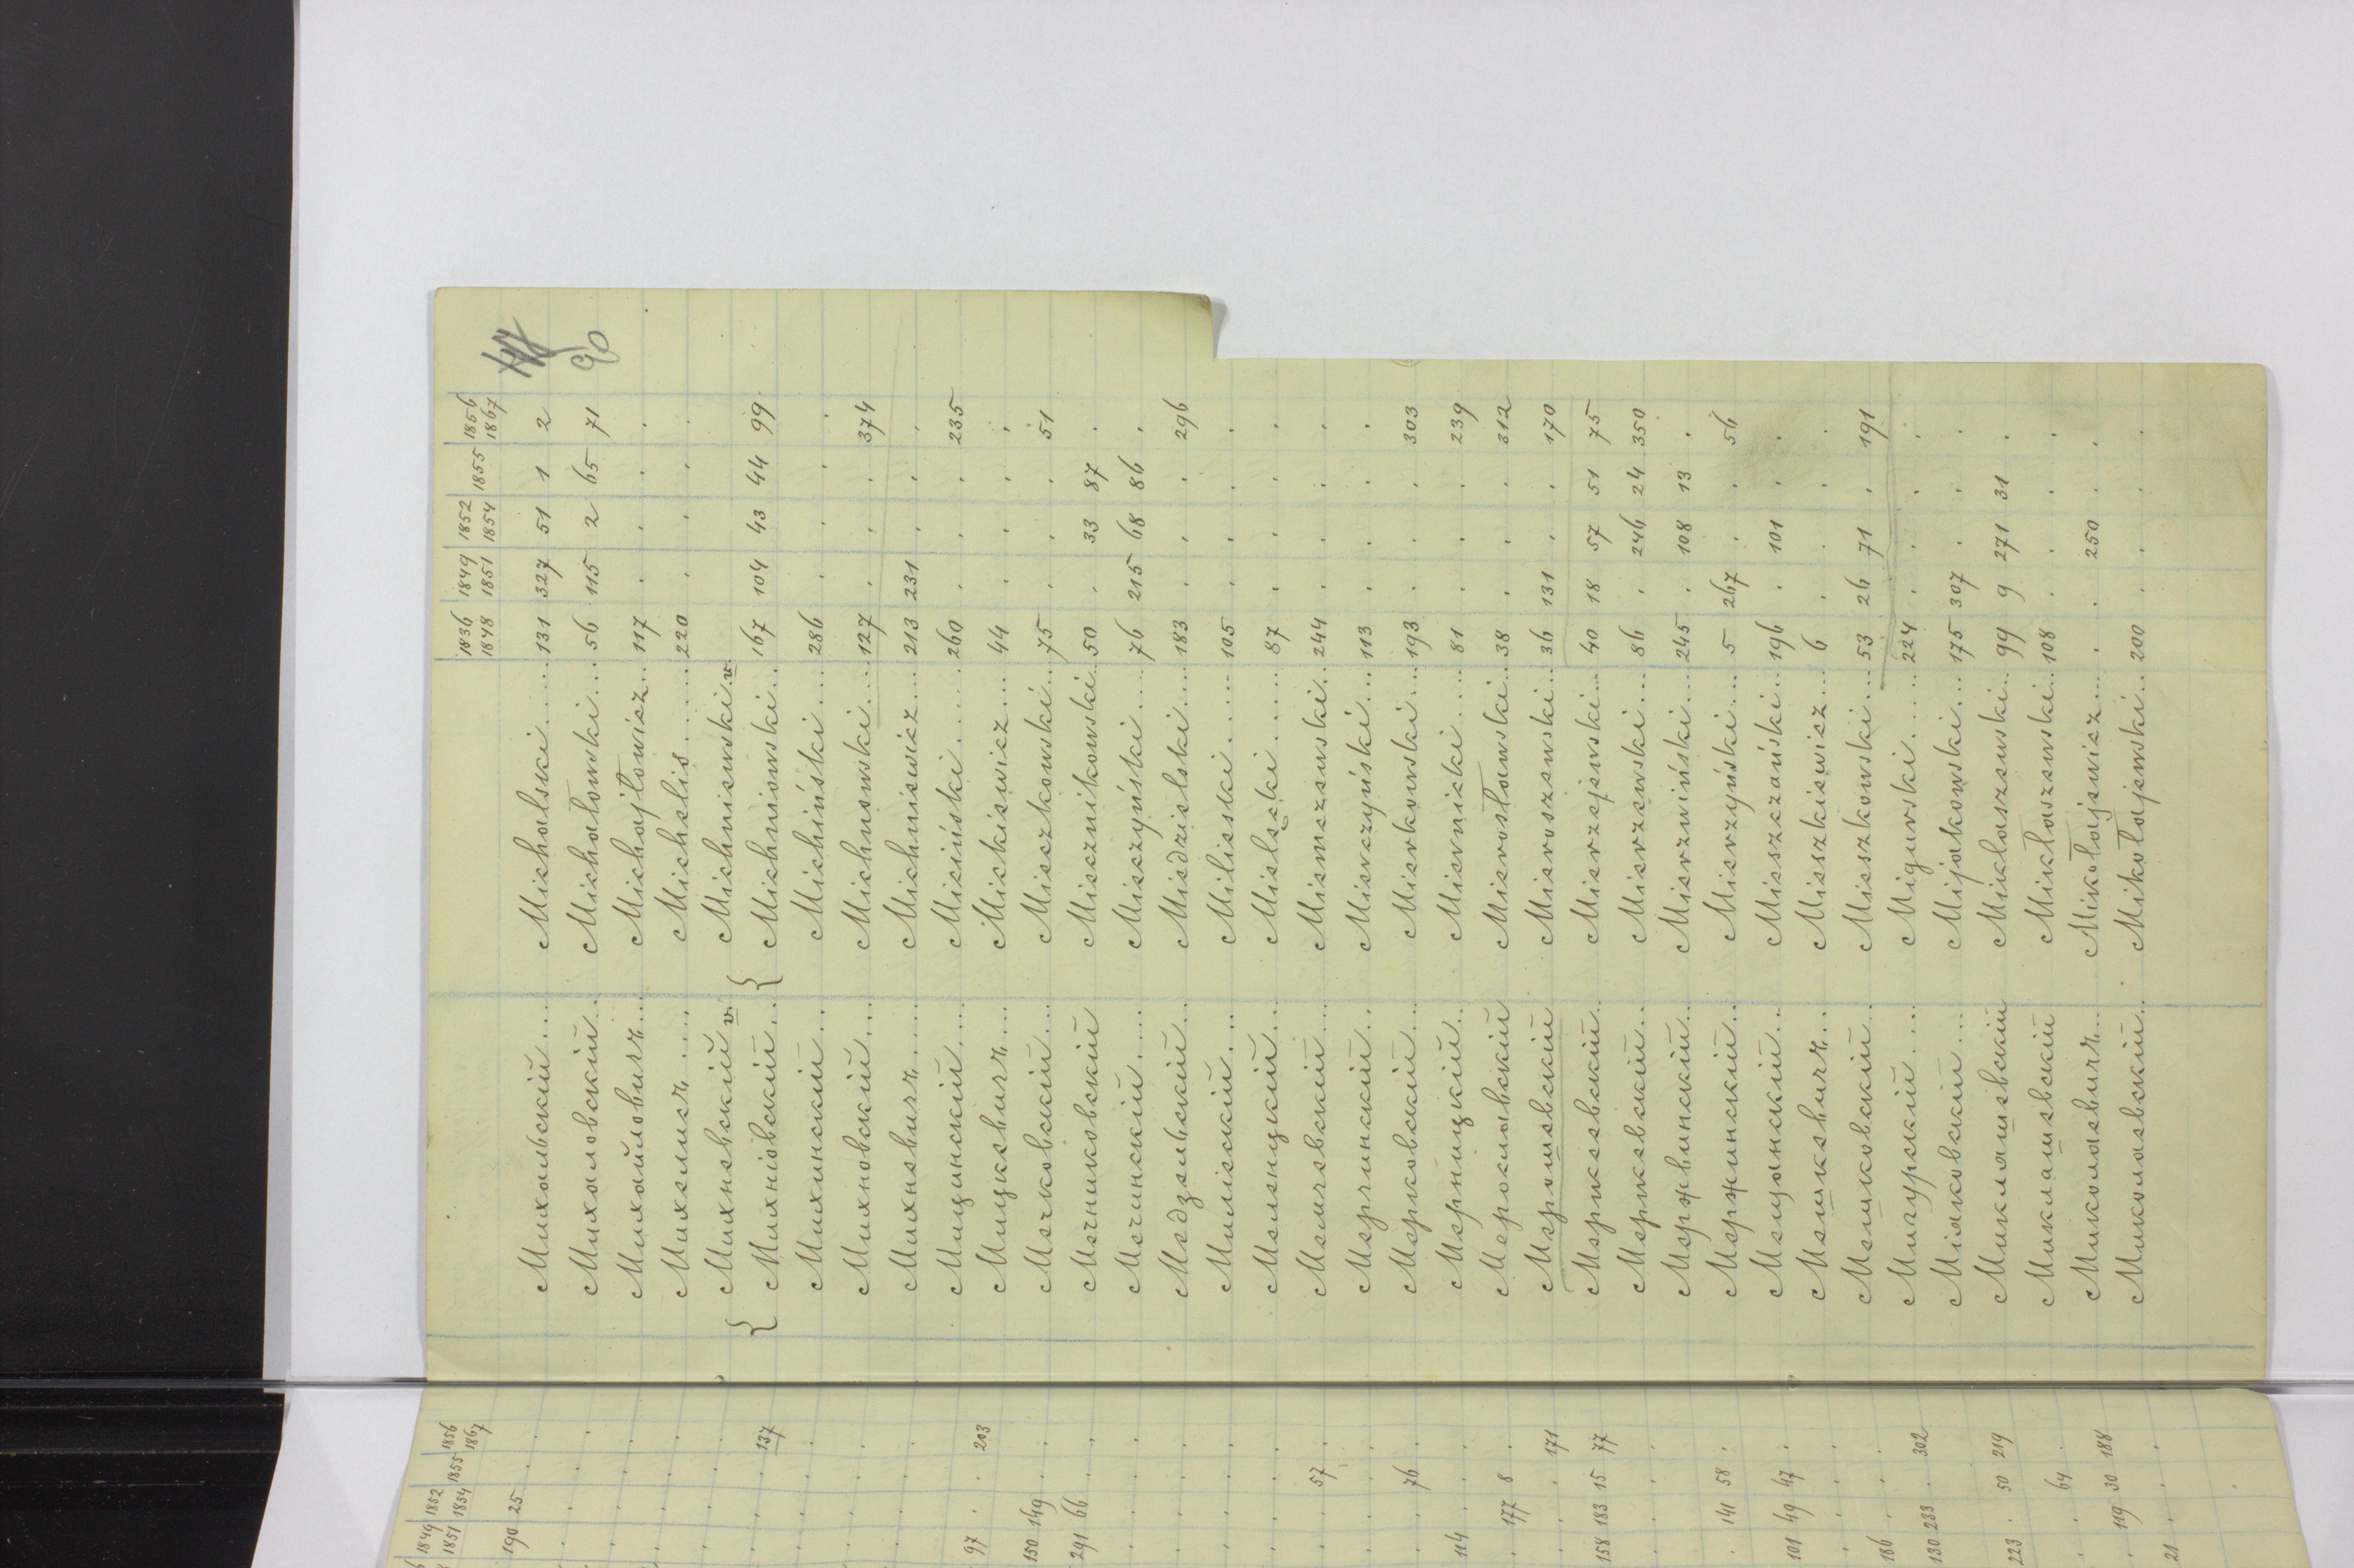 90
1836 1848 | 1849 1851 | 1852 1854 | 1855 | 1856 1867
Михальскій.... Michalski..... 131 327 51 1 2
Михаловскій... Michałowski... 56 115 2 65 71
Михайловичъ... Michajłowicz... 117 . . . .
Михелисъ..... Michelis...... 220 . . . .
{ Михневскій v. Michniewski v.
Михніовскій.. { Michniowski... 167 104 43 44 99
Михинскій... Michiński.... 286 . . . .
Михновскій... Michnowski.... 127 . . . 374
Михневичъ.... Michniewicz... 213 231 . . .
Мицинскій.... Miciński...... 260 . . . 235
Мицкевичъ.... Mickiewicz... 44 . . . .
Мечковскій... Mieczkowski... 75 . . . 51
Мечниковскій Miecznikowski... 50 . 33 87 .
Мечинскій.... Mieczyński.... 76 215 68 86 .
Медзельскій... Miedzielski... 183 . . . 296
Миліескій.... Milieski...... 105 . . . .
Меленцкій... Mielęcki...... 87 . . . .
Мемчевскій... Miemczewski... 244 . . . .
Мерчинскій... Mierczyński... 113 . . . .
Мерковскій... Mierkowski... 193 . . . 303
Мерницкій... Miernicki.... 81 . . . 239
Мерославскій Mierosławski... 38 . . . 312
Мерошевскій Mieroszewski... 36 131 . . 170
Мержеевскій.. Mierzejewski... 40 18 57 51 75
Мержевскій.. Mierzewski.... 86 . 246 24 350
Мержвинскій.. Mierzwiński... 245 . 108 13 .
Мержинскій.. Mierzyński.... 5 267 . . 56
Мещанскій... Mieszczański... 196 . 101 . .
Мешкевичъ... Mieszkiewicz... 6 . . . .
Мешковскій.. Mieszkowski... 53 26 71 . 191
Мигурскій.... Migurski..... 224 . . . .
Міяковскій... Mijakowski... 175 307 . . .
Миклашевскій Miklaszewski... 99 9 271 31 .
Миклашевскій Mikłaszewski... 108 . . . .
Миколаевичъ... Mikołajewicz... . . 250 . .
Миколаевскій.. Mikołajewski... 200 . . . .
1849 1851 | 1852 1854 | 1855 | 1856 1867
190 25 . .
. . . 137
97 . . 203
150 149 . .
291 66 . .
. . 57 .
. . 76 .
114 . . .
. 177 8 .
. . . 171
158 183 15 77
. 141 58 .
101 49 47 .
186 . . .
130 233 . 302
223 . 50 219
. . 64 .
. 119 30 188
21 . . .